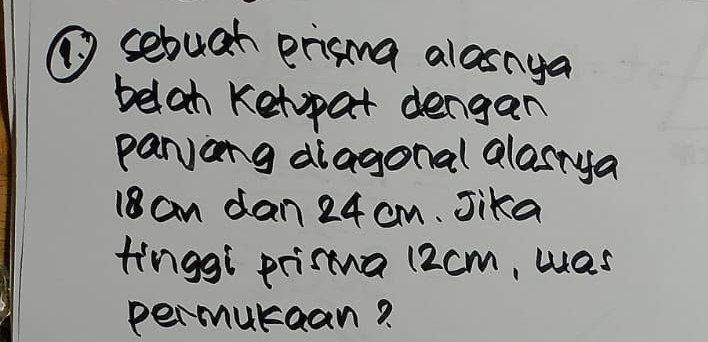 1. sebuah prisma alasnya
belah ketupat dengan
panjang diagonal alasnya
18 cm dan 24 cm. Jika
tinggi prisma 12 cm, luas
permukaan?